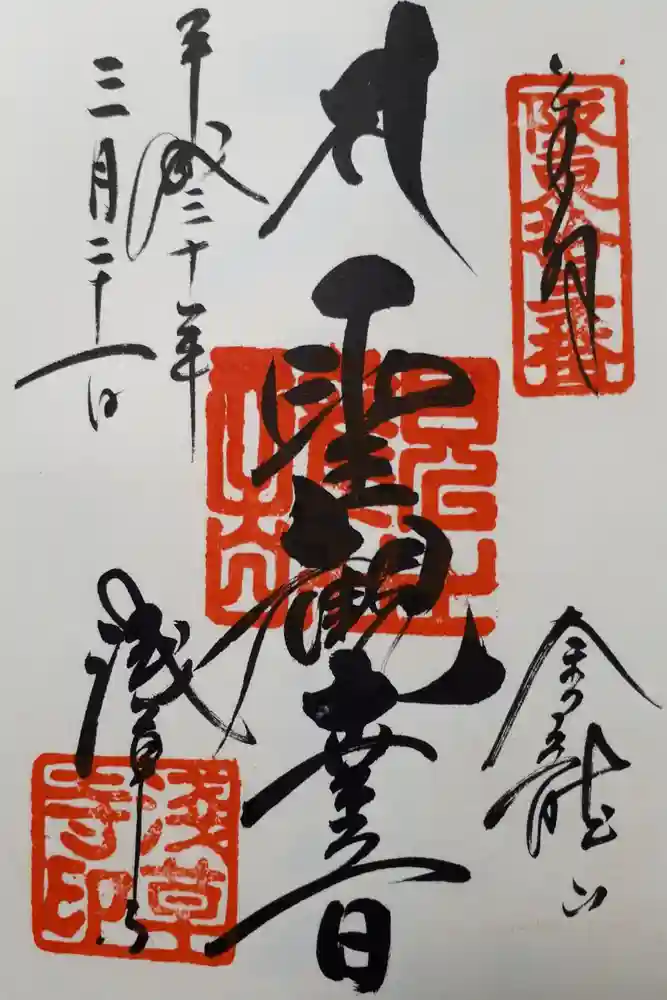 奉拝
阪東拾三番
金龍山
聖観世音
平成三十年
三月二十一日
浅草寺
淺草寺印